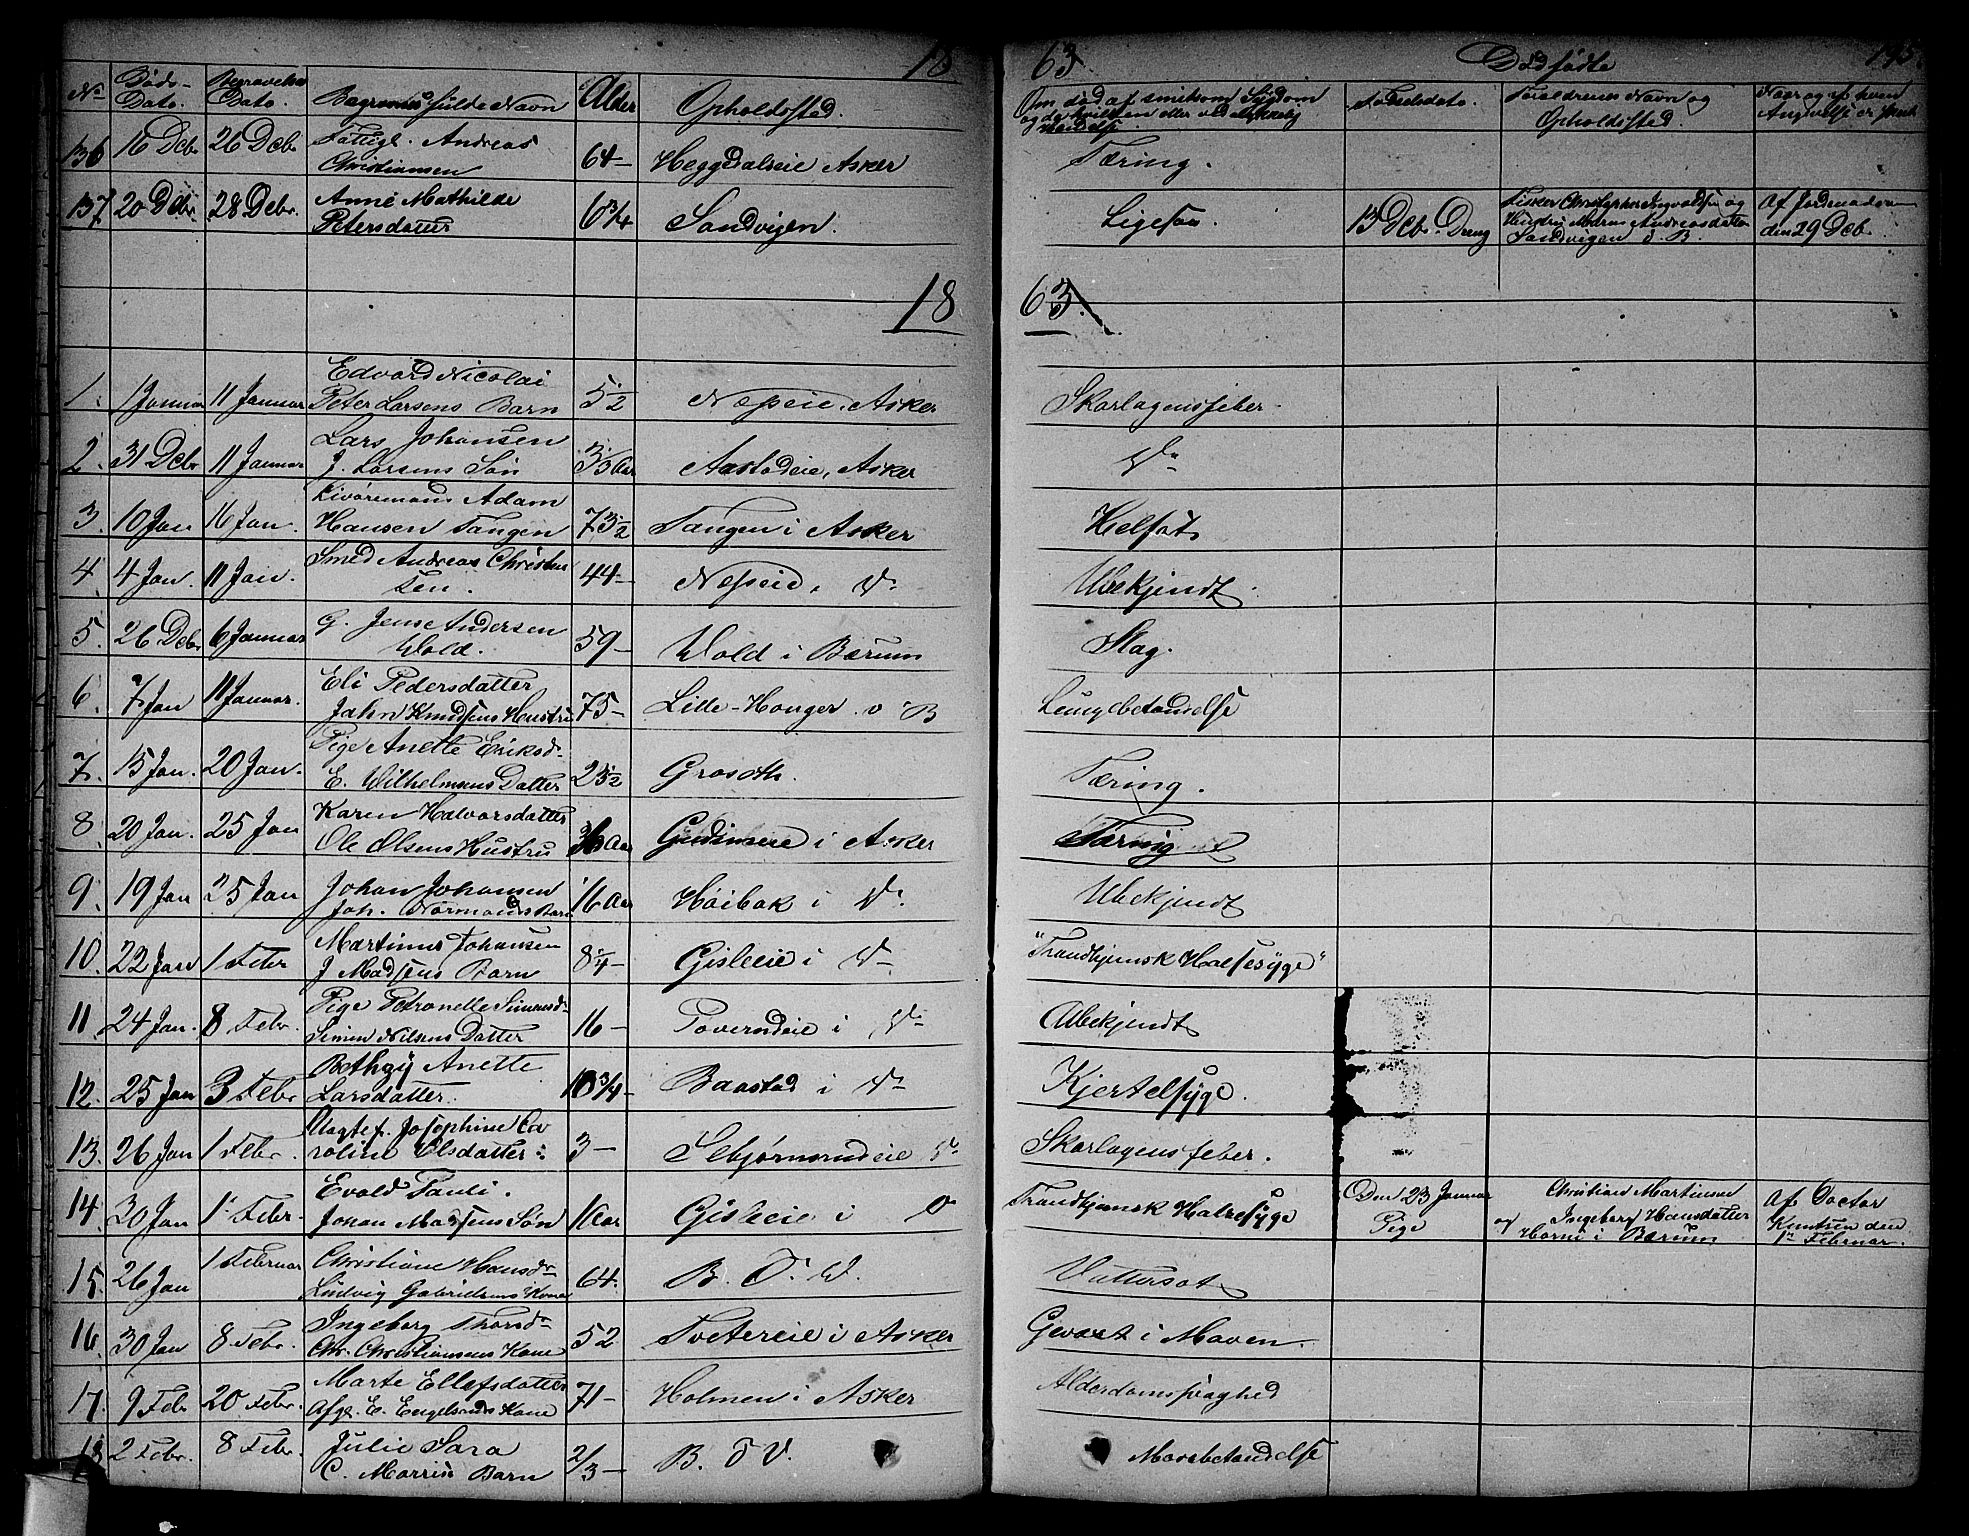 18 63 Dødfødte 195.
No Døds-Dato. Begravelses Dato. Begravnes fulde Navn Alder Opholdssted. Om død af smitsom Sygdom og da hvilken eller ved ulykkelig Hændelse Fødselsdato. Forældrenes Navn og Opholdssted. Naar og af hvem Angivelse er skeet
136 16 Debr 26 Debr Fattigl. Andreas Christiansen 64– Heggedalseie Asker Tæring.
137 20 Debr 28 Debr. Anne Mathilde Petersdatter 6 3/4 Sandvigen. Ligesaa 13 Debr. Dreng Fisker Christopher Ingvaldsen og Hustru Maren Andreasdatter Sandvigen i B. Af Jordmoderen den 29 Deb.
18 63.
1. 1 Januar 11 Januar Edvard Nicolai Peter Larsens Barn 5 1/2 Nesseie, Asker Skarlagensfeber
2. 31 Debr 11 Januar Lars Johansen J. Larsens Søn 3/3 Aar Aastadeie, Asker Do
3. 10 Jan 16 Jan. Livøremand Adam Hansen Tangen 73 1/2 Tangen i Asker Helsot
4 4 Jan. 11 Jan. Smed Andreas Christensen. 44– Nesseie, Do Ubekjendt.
5. 26 Debr 6 Januar G. Jens Andersen Wold. 59– Wold i Bærum Slag.
6 7 Jan 11 Januar. Eli Pedersdatter Jahn Knudsens Hustru 75– Lille-Honger i B Lungebetændelse
7. 15 Jan. 20 Jan. Pige Anette Eriksd. E. Wilhelmsens Datter 23 1/2 Grosoth. Tæring.
8. 20 Jan. 25 Jan Karen Halvorsdatter Ole Olsens Hustru 36 Aar Gudimeie i Asker Tæring
9. 19 Jan 25 Jan Johan Johansen Joh. Normands Barn 16 Aar Høibak i Do. Ubekjendt
10. 22 Jan 1 Febr Martinus Johansen J Madsens Barn 8 1/4– Gisleie i Do "Trondhjemsk Halsesyge"
11. 24 Jan. 8 Febr. Pige Petronelle Simensd. Simen Nilsens Datter 16– Toverudeie i Do Ubekjendt
12. 25 Jan 3 Febr Bethzy Anette Larsdatter. 10 3/4– Baastad i Do Kjertelsyge.
13. 26 Jan 1 Febr. Uægtef. Josephine Caroline Olsdatter 3– Sebjørnsrudeie Do Skarlagensfeber.
14. 30 Jan 1 Febr. Evald Pauli. Johan Madsens Søn 1 Aar Gisleie i D Trondhjemsk Halsesyge Den 23 Januar Pige Christian Martinsen og Ingeborg Hansdatter Horni i Bærum Af Doctor Knutsen den 1ste Februar.
15. 26 Jan 1 Februar Christiane Hansdr Ludvig Gabrielsens Kone 64. B. T. V. Vattersot
16. 30 Jan 8 Febr. Ingeborg Thorsdr Chr. Christiansens Kone 52 Tvetereie i Asker Gevext i Maven.
17. 9 Feb 20 Febr. Marte Ellefsdatter Afg. E. Engelsruds Kone 71– Holmen i Asker Alderdomssvaghed
18 2 Febr. 8 Febr. Julie Sara C. Morris Barn 2/3– B. T V. Mavebetændelse